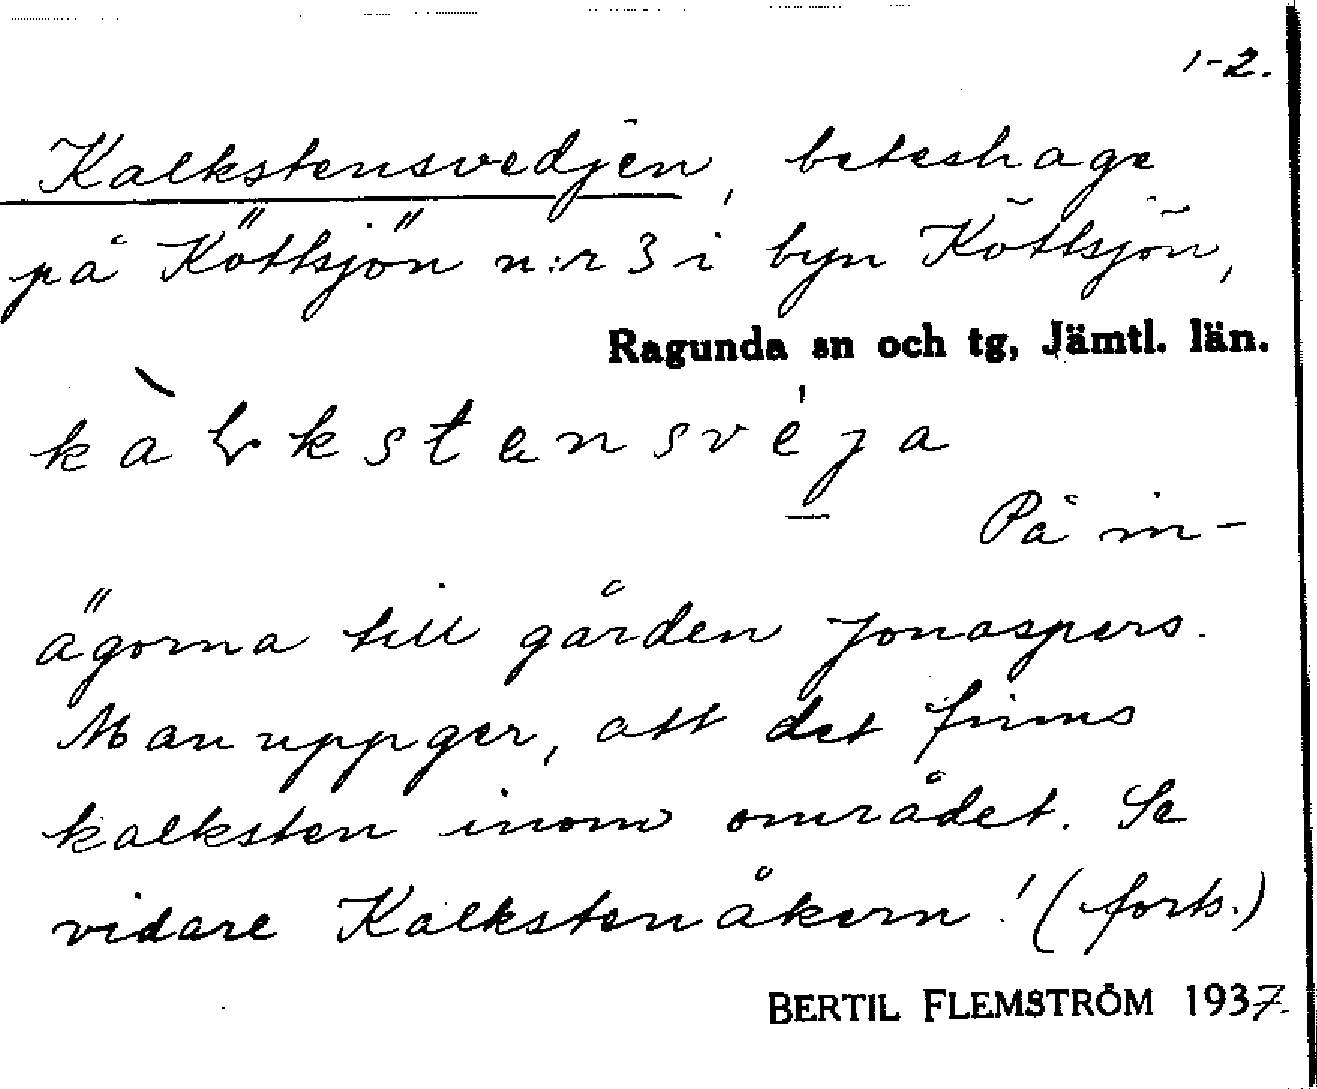 1-2.
Kalkstensvedjen, beteshage
på Köttsjön n:r 3 i byn Köttsjön,
Ragunda sn och tg, Jämtl. län.
På in-
ägorna till gården Jonaspers.
Man uppger, att det finns
kalksten inom området. Se
vidare Kalkstenåkern! (forts.)
BERTIL FLEMSTRÖM 1937.